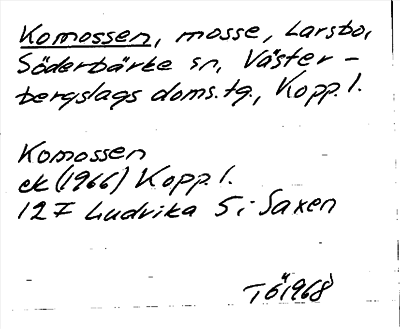 Komossen, mosse, Larsbo,
Söderbärke sn, Väster-
bergslags doms.tg., Kopp.l.
Komossen
ek (1966) Kopp.l.
12F Ludvika 5i Saxen
TÖ 1968